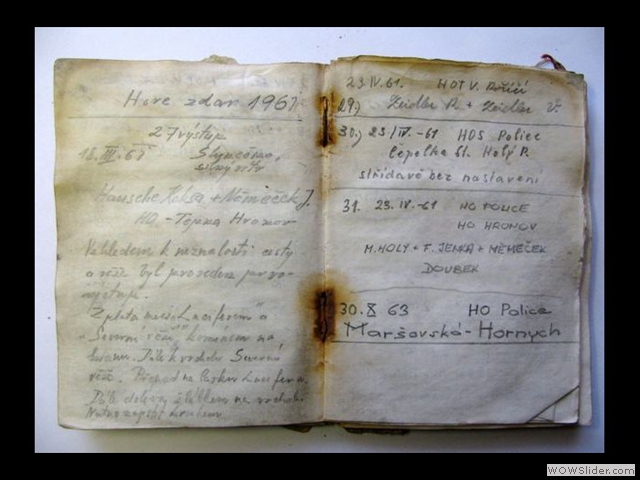 Hore zdar 1961.
27 výstup
18. III. 61 Slunečno,
silný vítr
Hausche, Koksa + Němeček J.
HO - Tepna Hronov
Vzhledem k neznalosti cesty
a věž byl proveden prvo-
výstup.
Z plata mezi Luciferem a
"Severní věží" komínem na
hranu. Dále k vrcholu Severní
věže. Přechod na Lucifera.
Dále na vrchol.
23.IV.61. HOT V. Poříčí
29.) Zeidler R. + Zeidler V.
30.) 23/IV.-61 HOS Police
Čepelka St. Holý P.
střídavě bez nastavení
31. 23.IV.-61 HO POLICE
HO HRONOV
M. HOLÝ + F. JENKA + NĚMEČEK
DOUBEK
30.X 63 HO Police
Maršovská - Hornych
WOWSlider.com